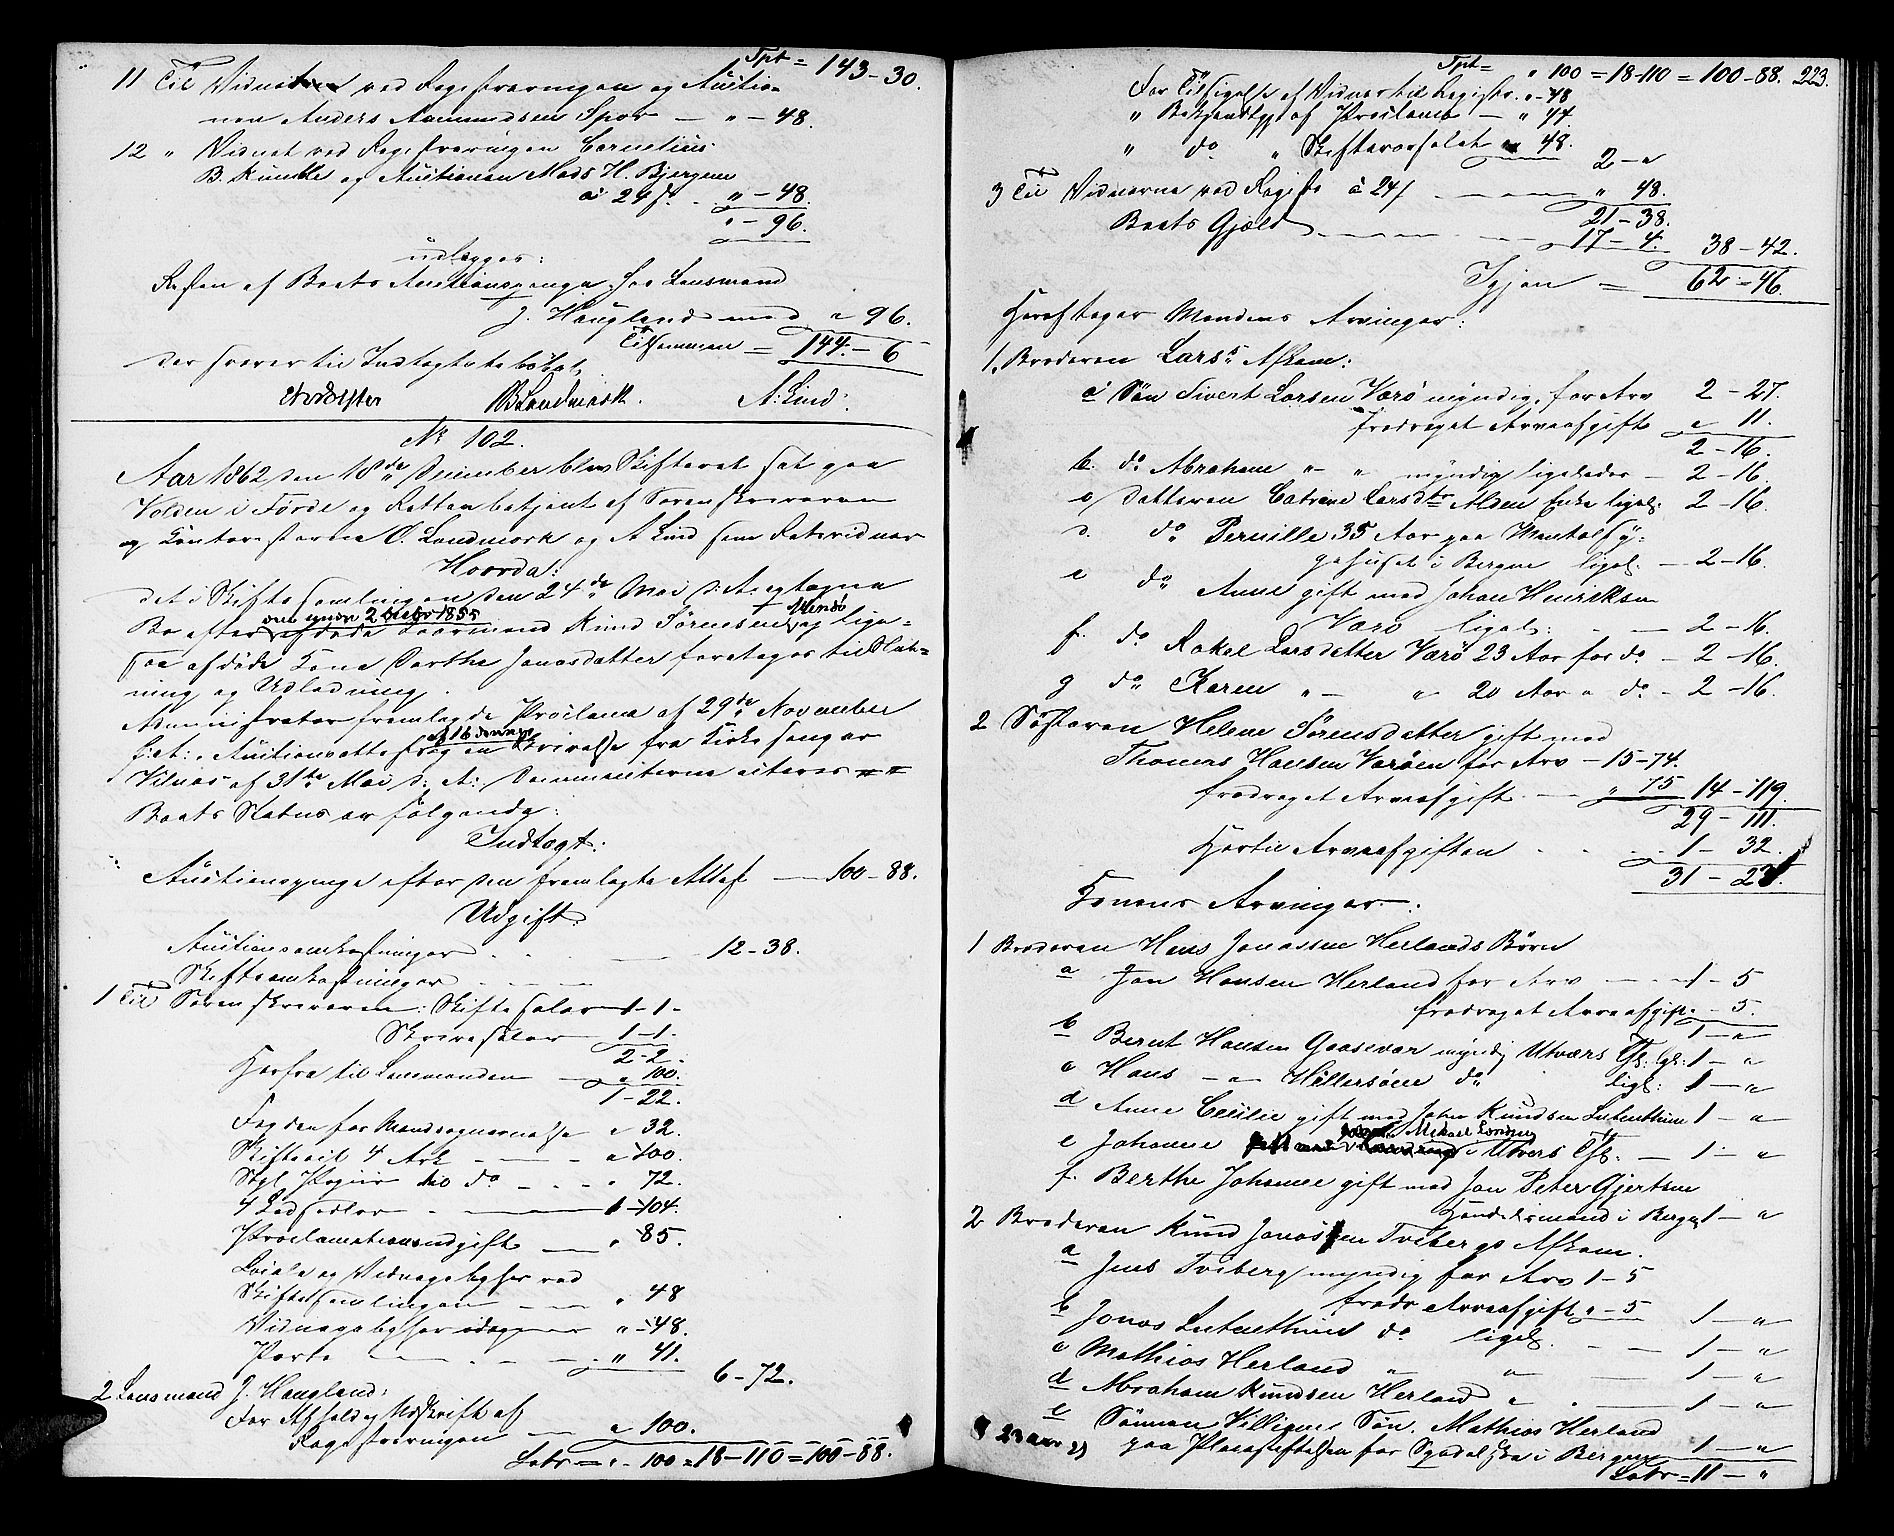 Tpt = 143-30.
11 Til Vidnet ved Registreringen og Auctio-
nen Anders Aamundsen Spor — " - 48.
12 " Vidnet ved Registreringen Cornelius
B. Kumle og Auctionen Mads H. Bjergene
à 24 s. . " - 48.
" - 96.
udlægges:
Resten af Boets Auctionspenge hos Lensmand
J. Haugland med " 96.
Tilsammen = 144 - 6
der svarer til Indtægtsbeløbet.
B Landmark. A. Lind.
No 102.
Aar 1862 den 18de December blev Skifteret sat paa
Volden i Førde og Retten betjent af Sorenskriveren
og Contoristerne O. Landmark og A Lind som Retsvidner
Hvorda:
det i Skiftesamlingen den 24de Mai d: A: egtagne
Bo efter den under 2 Octbr 1855 afdøde Knud Sørensen Værø og lige-
saa afdøde Kone Dorthe Jonasdatter foretages til Slut-
ning og Udlodning.
Administrator fremlagde Proclama af 29de November
f: A:, Auctionsattest og en Skrivelse fra Kirkesanger
Vilnes af 31te Mai d: A: Documenterne citeres
Boets Status er følgende:
Indtægt:
Auctionspenge efter den fremlagte Attest — 100-88.
Udgift:
Auctionsomkostninger . . — 12-38.
Skifteomkostninger
1 Til Sorenskriveren: Skiftesalar 1-1-
Skriversalar 1-1-
2-2-
Herfra til Lensmanden — " 100.
1-22.
Fogden for Mandsopnævnelse " 32.
Skifteret 4 Ark — " 100.
Stpl. Papir til do — " 72.
4 Lodsedler — 1-104.
Proclamationsudgift — " 85.
Locale og Vidnegebyhr ved
Skiftesamlingen — " 48
Vidnegebyhr idag " - 48.
Porto — " 41.
6-72.
2 Lensmand J. Haugland:
For Afhold og Udskrift af
Registreringen — " 100.
Latr = " - 100 = 18-110 = 100-88.
Tpt = " 100 = 18-110 = 100-88. 223.
For Tilsigelse af Vidner til Registr. " - 48
" Bekjendtgj. af Proclama — " 44.
" do " Skiftevarselet " 48.
2 - "
3 Til Vidnerne ved Regist. à 24 s — " 48.
21-38.
Boets Gjæld — 17-4. 38-42.
Igjen = 62-46.
Heraf tager Mandens Arvinger:
1. Broderen Lars's Afkom:
a Søn Sivert Larsen Værø myndig, for Arv 2-27.
fradraget Arveafgift " 11.
2-16.
b. do Abraham " - " myndig ligeledes - 2-16.
c Datteren Catrine Larsdtr Alden Enke ligel: 2-16.
d. do Pernille 35 Aar paa Mentalsy-
gehuset i Bergen ligel. — 2-16.
e do Anne gift med Johan Henriksen
Værø ligel: — 2-16.
f. do Rakel Larsdatter Værø 23 Aar for do — 2-16.
g do Karen " - " 20 Aar " do - 2-16.
2 Søsteren Helene Sørensdatter gift med
Thomas Hansen Værøen for Arv - 15-74.
fradraget Arveafgift — " 75 14-119.
29-111.
Hertil Arveafgiften . . 1-32.
31-23.
Konens Arvinger:
1 Broderen Hans Jonassen Herlands Børn
a Jon Hansen Herland for Arv — 1-5
fradraget Arveafgift " - 5.
1 - "
b Bernt Hansen Gaasevær myndig Utvær Tgl: lgl: 1 - "
c Hans - " - Hillersøen do ligl: 1 - "
d Anne Cecilie gift med John Knudsen Lutelthun 1 - "
e Johanne Mikael i Utvers Tgl. — 1 - "
f. Berthe Johanne gift med Jon Peter Gjertsen
Handelsmand i Bergen 1 - "
2 Broderen Knud Jonassen Tvibergs Afkom.
a Jens Tviberg myndig for Arv 1-5
fradr Arveafgift " - 5 1 - "
b Jonas Lutelthun do ligel. — 1 - "
c Mathias Herland " " — 1 - "
d Abraham Knudsen Herland " . — 1 - "
e Sønnen Villigens Søn. Mathias Herland
23 aar gl paa Pleiestiftelsen for Spedalske i Bergen 1 - "
Latr = 11 - "